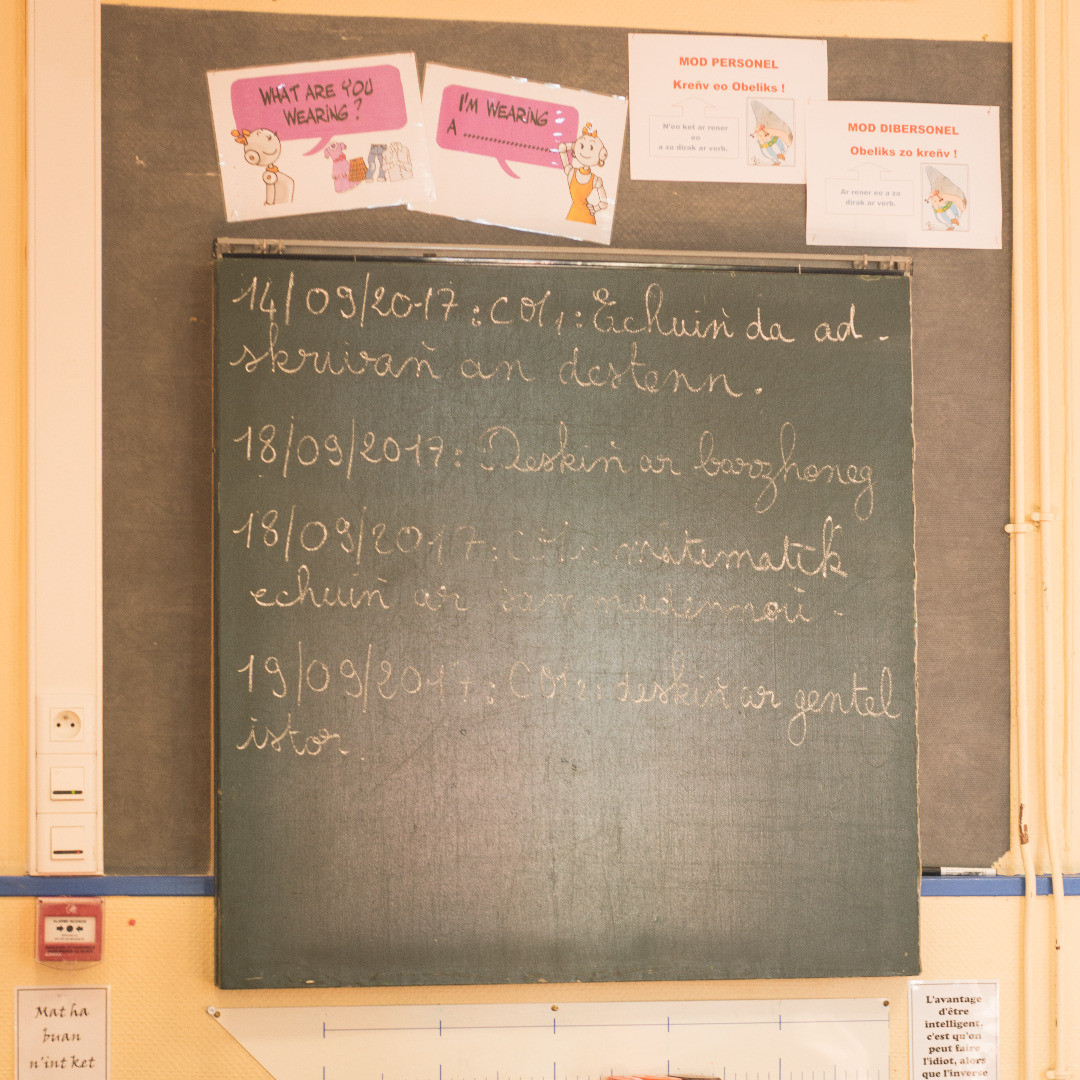 WHAT ARE YOU
WEARING ?
I'M WEARING
A ....................
MOD PERSONEL
Kreñv eo Obeliks !
N'eo ket ar rener
eo
a zo dirak ar verb.
MOD DIBERSONEL
Obeliks zo kreñv !
Ar rener eo a zo
dirak ar verb.
14/09/2017 : COM1 : Echuiñ da ad-
skrivañ an destenn.
18/09/2017 : Deskiñ ar barzhoneg
18/09/2017 : matematik
echuiñ ar
19/09/2017 : deskiñ ar gentel
istor.
Mat ha
buan
n'int ket
L'avantage
d'être
intelligent,
c'est qu'on
peut faire
l'idiot, alors
que l'inverse